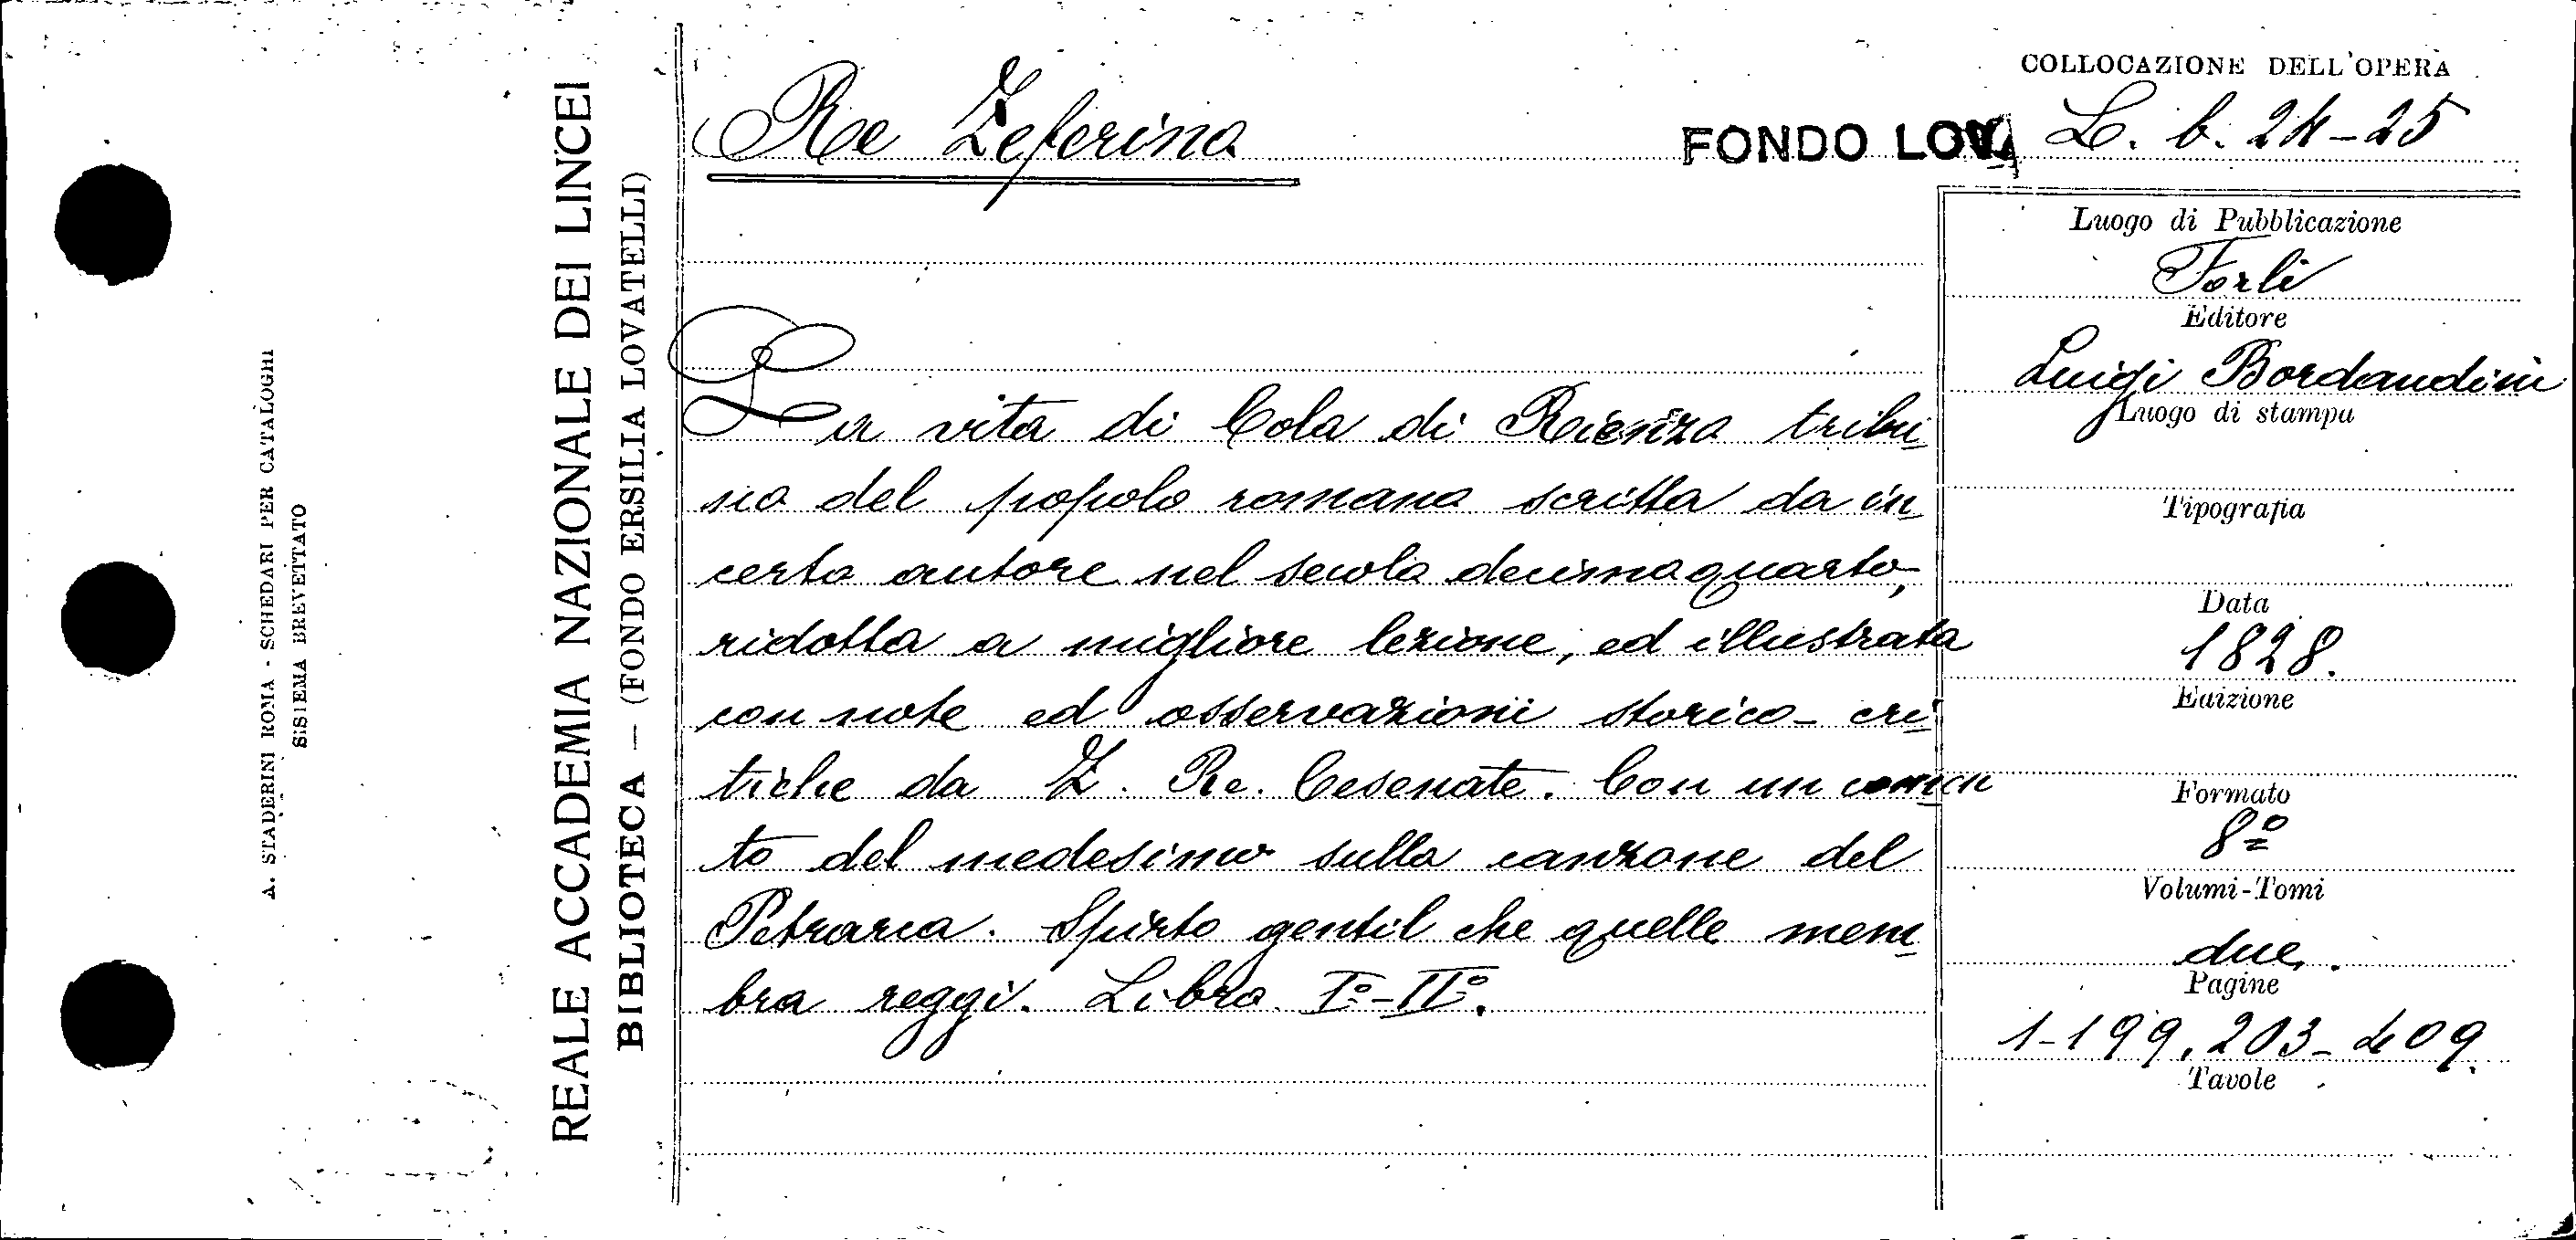 A. STADERINI ROMA - SCHEDARI PER CATALOGHI
SISTEMA BREVETTATO
REALE ACCADEMIA NAZIONALE DEI LINCEI
BIBLIOTECA — (FONDO ERSILIA LOVATELLI)
COLLOCAZIONE DELL'OPERA
Re Zeferino
FONDO LOV. L. b. 24-25
La vita di Cola di Rienzo tribu
no del popolo romano scritta da in
certo autore nel secolo decimoquarto,
ridotta a migliore lezione, ed illustrata
con note ed osservazioni storico-cri
tiche da Z. Re. Cesenate. Con un comen
to del medesimo sulla canzone del
Petrarca. Spirto gentil che quelle mem
bra reggi. Libro I°-II°.
Luogo di Pubblicazione
Forlì
Editore
Luigi Bordandini
Luogo di stampa
Tipografia
Data
1828.
Edizione
Formato
8°
Volumi-Tomi
due.
Pagine
1-199, 203-409.
Tavole